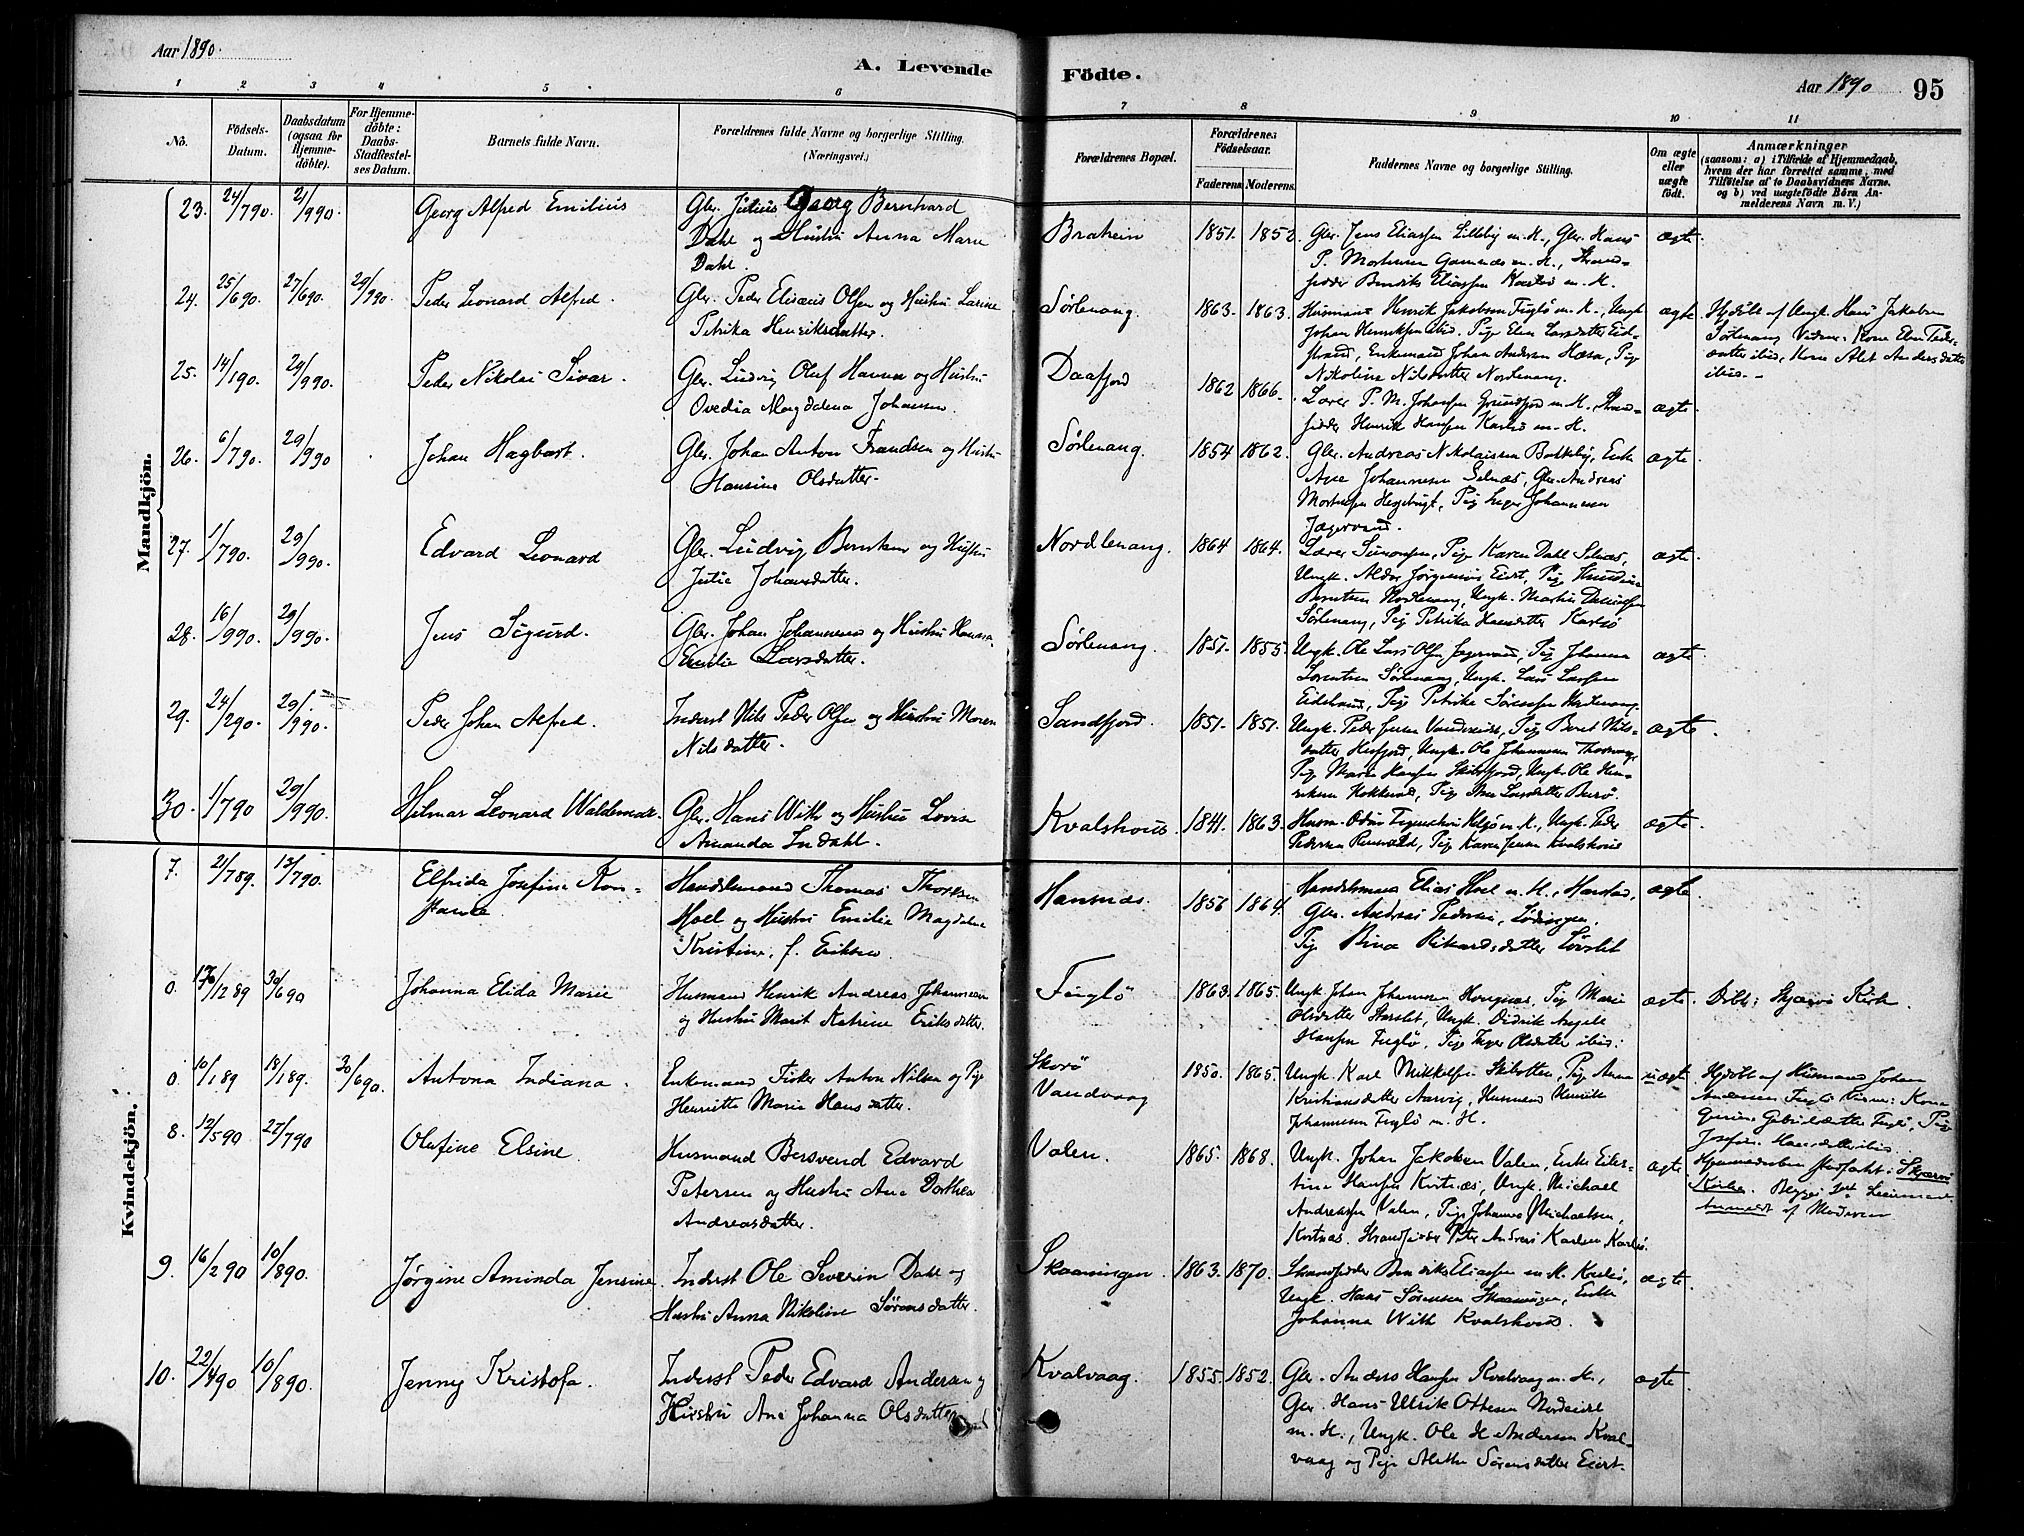 Aar 1890.
A. Levende
Födte.
Aar 1890
95
1 2 3 4 5 6
7 8 9 10 11
No.
Födsels-
Datum.
Daabsdatum
(ogsaa for
Hjemme-
döbte).
For Hjemme-
döbte:
Daabs-
Stadfestel-
ses Datum.
Barnets fulde Navn.
Forældrenes fulde Navne og borgerlige Stilling.
(Næringsvei.)
Forældrenes Bopæl.
Forældrenes
Födselsaar.
Faderens. Moderens.
Faddernes Navne og borgerlige Stilling.
Om ægte
eller
uægte
födt.
Anmærkninger
(saasom: a) i Tilfælde af Hjemmedaab,
hvem der har forrettet samme, med
Tilføielse af to Daabsvidners Navne.
og b) ved uægtefödte Börn An-
melderens Navn m. V.)
Mandkjön.
23. 24/790. 21/990. Georg Alfred Emilius
Gbr. Julius Georg Bernhard
Dahl og Hustru Anna Marie
Dahl.
1851. 1852. Gbr. Jens Eliassen m. H., Gbr. Hans
P. Mortensen m. H.,
Eliassen Karlsö m. H.
ægte
24. 25/690. 27/690. 29/990. Peder Leonard Alfred.
Gbr. Peder Elisæus Olsen og Hustru Larine
Petrika Henriksdatter.
Sörlenang. 1863. 1863. Husmand Henrik Jakobsen Fuglö m. K., Ungk.
Johan Henriksen ibid. Pige Elen Larsdatter Eid-
strand, Enkemand Johan Andersen Pige
Nikoline Nilsdatter Nordlenang.
ægte
Hjdöbt af Ungk. Hans Jakobsen
Sörlenang Vidner: Kone Elen Peder-
datter ibid, Kone Andersdatter
ibid.
25. 14/190. 29/990. Peder Nikolai Sivar.
Gbr. Ludvig Oluf Hansen og Hustru
Ovedia Magdalena Johansen.
Daafjord 1862 1866. Lærer P. M. Johansen Grundfjord m. H., Strand-
sidder Henrik Hansen Karlsö m. H.
ægte.
26. 6/790. 29/990 Johan Hagbart.
Gbr. Johan Anton Frandsen og Hustru
Hansine Olsdatter.
Sörlenang. 1854 1862. Gbr. Andreas Nikolaisen Bakkeby, Enke
Ane Johannesen Selnæs, Gbr. Andreas
Mortensen Hessbugt, Pige Inger Johannesen
Jægervand.
ægte.
27. 1/790. 29/990. Edvard Leonard
Gbr. Ludvig Berntsen og Hustru
Julie Johansdatter.
Nordlenang. 1864 1864. Lærer Simonsen, Pige Karen Dahl Selnæs,
Ungk. Aldor Jörgensen Eiert, Pige
Berntsen Nordlenang, Ungk. Martin
Sörlenang, Pige Petrika Hansdatter Karlsö
ægte.
28. 16/990. 29/990. Jens Sigurd.
Gbr. Johan Johannesen og Hustru
Emilie Larsdatter.
Sörlenang. 1851. 1855. Ungk. Ole Lars Olsen Jægervand, Pige Johanna
Lorentsen Sörlenang, Ungk. Lars Larsen
Eidstrand, Pige Petrika Sörensen Nordlenang.
ægte
29. 24/290. 29/990. Peder Johan Alfred.
Inderst Nils Peder Olsen og Hustru Maren
Nilsdatter.
Sandfjord. 1851. 1851. Ungk. Peder Jensen Vandereide, Pige Beret Nils-
datter Ungk. Ole Johannesen
Pige Marie Hansen Skibsfjord, Ungk. Ole Hen-
riksen Pige Larsdatter
ægte.
30. 1/790 29/990. Hilmar Leonard Waldemar.
Gbr. Hans With og Hustru Lovise
Amanda Indahl.
Kvalshous. 1841. 1863. Husm. Odin m. K., Ungk. Peder
Pedersen Pige Karen Jensen Kvalshous
ægte
Kvindekjön.
7. 21/789. 13/790. Elfrida Josefine Kon-
stance
Handelsmand Thomas Thorksen
Hoel og Hustru Emilie Magdalene
Kristine, f. Eriksen.
Hansnæs. 1856 1864. Handelsmand Elias Hoel m. H., Harstad,
Gbr. Andreas Pedersen, Lödingen,
Pige Bina Rikardsdatter
ægte.
0. 17/1289 30/690 Johanna Elida Marie
Husmand Henrik Andreas Johannesen
og Hustru Marit Katrine Eriksdatter.
Fuglö 1863. 1865. Ungk. Johan Johannesen Pige Marie
Olsdatter Ungk. Didrik Angell
Hansen Fuglö, Pige Inger Olsdatter ibid.
ægte. Döbt i Skjærvö Kirke.
0. 10/189 18/189. 30/690. Antona Indiana.
Enkemand Fisker Anton Nilsen og Pige
Henriette Marie Hansdatter.
Skorö
Vandvaag 1850. 1865. Ungk. Karl Mikkelsen Skibotten, Pige Anna
Kristiansdatter Aarvig, Husmand Henrik
Johannesen Fuglö m. H.
uægte
Hjdöbt af Husmand Johan
Andersen Fuglö Vidner: Kone
Gabrielsdatter Fuglö, Pige
Josefine Hansdatter ibid.
Hjemmedaaben stadfæstet i Skjærvö
Kirke.
Anmeldt af Moderen
8. 12/590 27/790 Olufine Elsine.
Husmand Bersvend Edvard
Petersen og Hustru Ane Dorthea
Andreasdatter.
Valen. 1865. 1868. Ungk. Johan Jakobsen Valen, Enke Eiler-
tine Hansen Kortnæs, Ungk. Michael
Andreassen Valen, Pige Johanna Michaelsen,
Kortnæs. Strandsidder Peter Andreas Karlsen, Karlsö.
ægte
9. 16/290 10/890. Jørgine Aminda Jensine.
Inderst Ole Severin Dahl og
Hustru Anna Nikoline Sörensdatter.
Skaaningen. 1863. 1870. Strandsidder Bendiks Eliassen m. H. Karlsö,
Ungk. Hans Sörensen Skaaningen, Enke
Johanna With Kvalshous.
ægte
10. 22/490 10/890. Jenny Kristofa.
Inderst Peder Edvard Andersen og
Hustru Ane Johanna Olsdatter
Kvalvaag. 1855. 1852. Gbr. Anders Hansen Kvalvaag m. H.,
Gbr. Hans Ulrik Ottesen Nordeidet
m. H., Ungk. Ole H Andersen Kval-
vaag og Pige Alethe Sörensdatter Eiert.
ægte